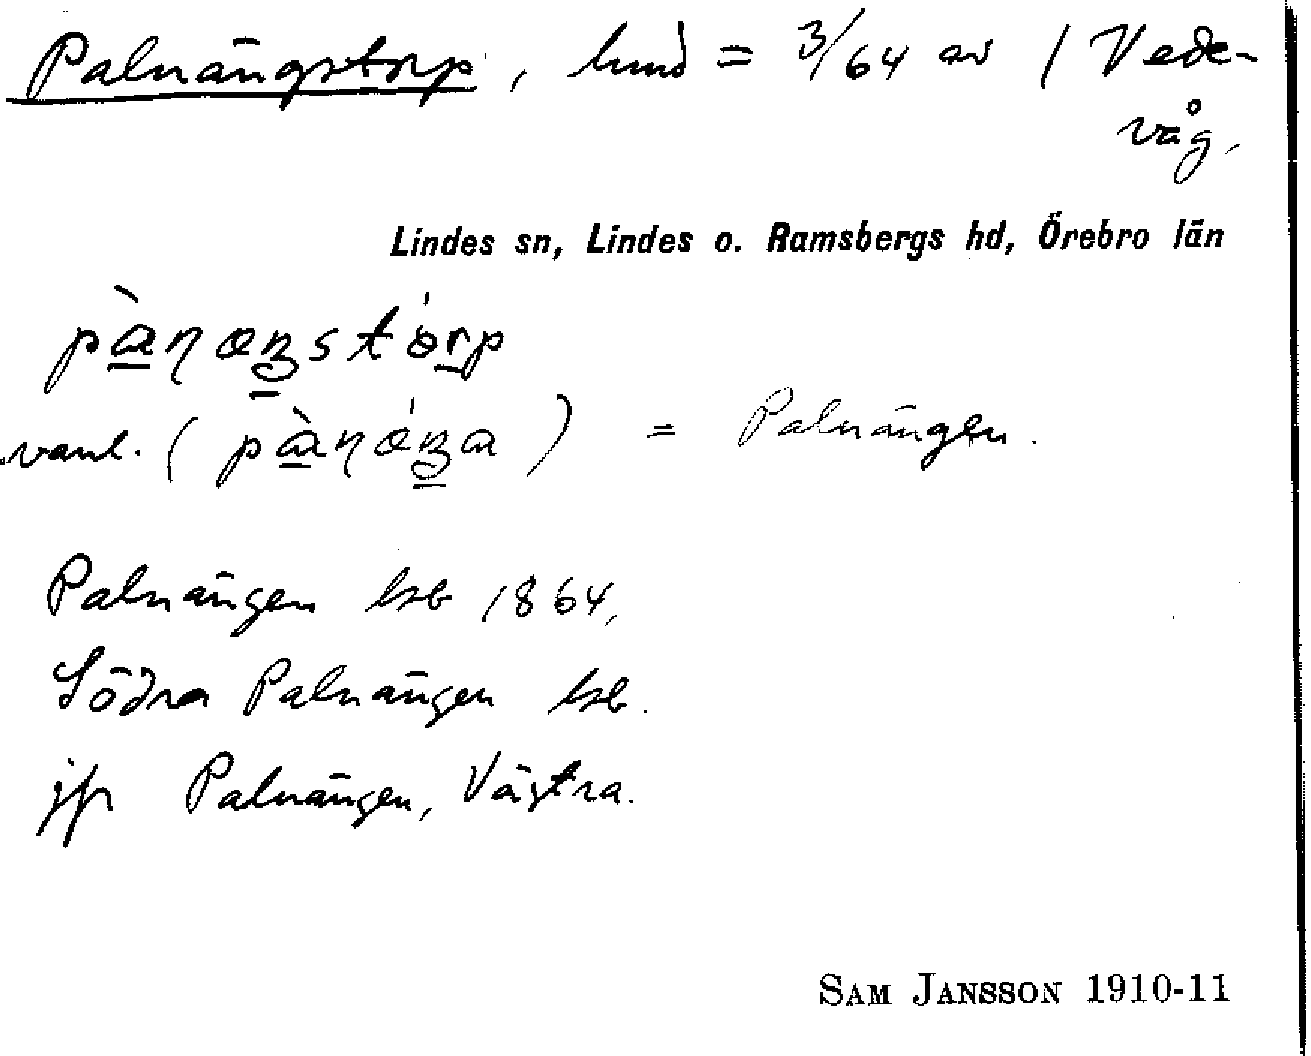 Palnängstorp, hmd = 3/64 av 1 Vede-
våg.
Lindes sn, Lindes o. Ramsbergs hd, Örebro län
vanl. ( ) = Palnängen.
Palnängen hsb 1864,
Södra Palnängen hsb.
jfr Palnängen, Västra.
SAM JANSSON 1910-11